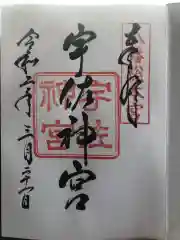 奉拝
宇佐神宮
宇佐
神宮
令和二年三月二十四日